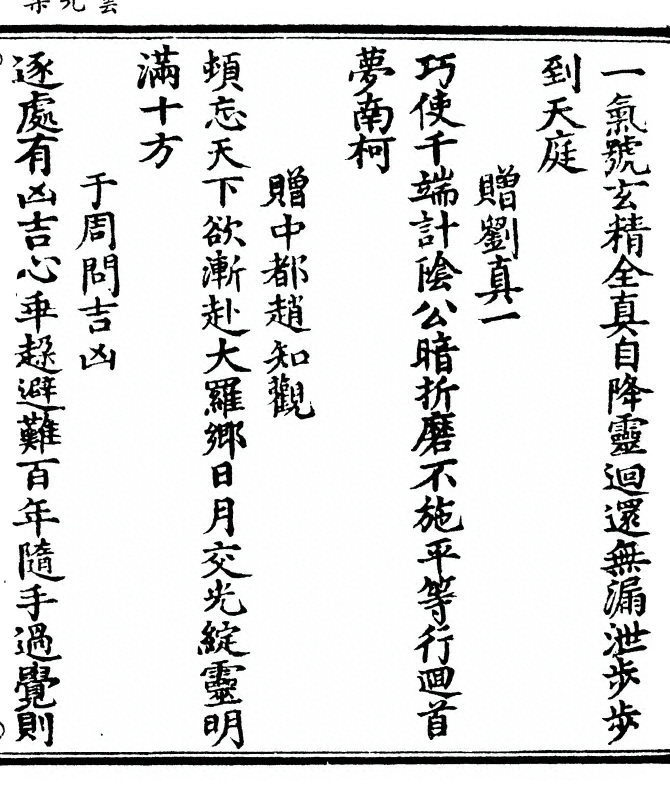 一氣號玄精全真自降靈迴還無漏泄步步
到天庭
贈劉真一
巧使千端計陰公暗折磨不施平等行迴首
夢南柯
贈中都趙知觀
頓忘天下欲漸赴大羅鄉日月交光綻靈明
滿十方
于周問吉凶
逐處有凶吉心乖趍避難百年隨手過覺則